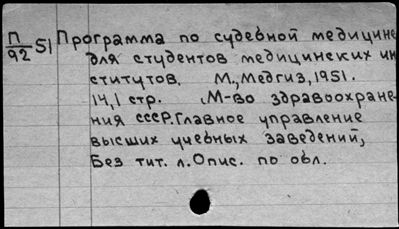 П/92 51 Программа по судебной медицине
для студентов медицинских ин
ститутов. М., Медгиз, 1951.
14,1 стр. М-во здравоохране-
ния СССР. Главное управление
высших учебных заведений,
Без тит. л. Опис. по обл.